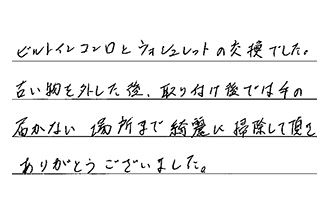 ビルトインコンロとウォシュレットの交換でした。
古い物を外した後、取り付け後では手の
届かない場所まで綺麗に掃除して頂き
ありがとうございました。